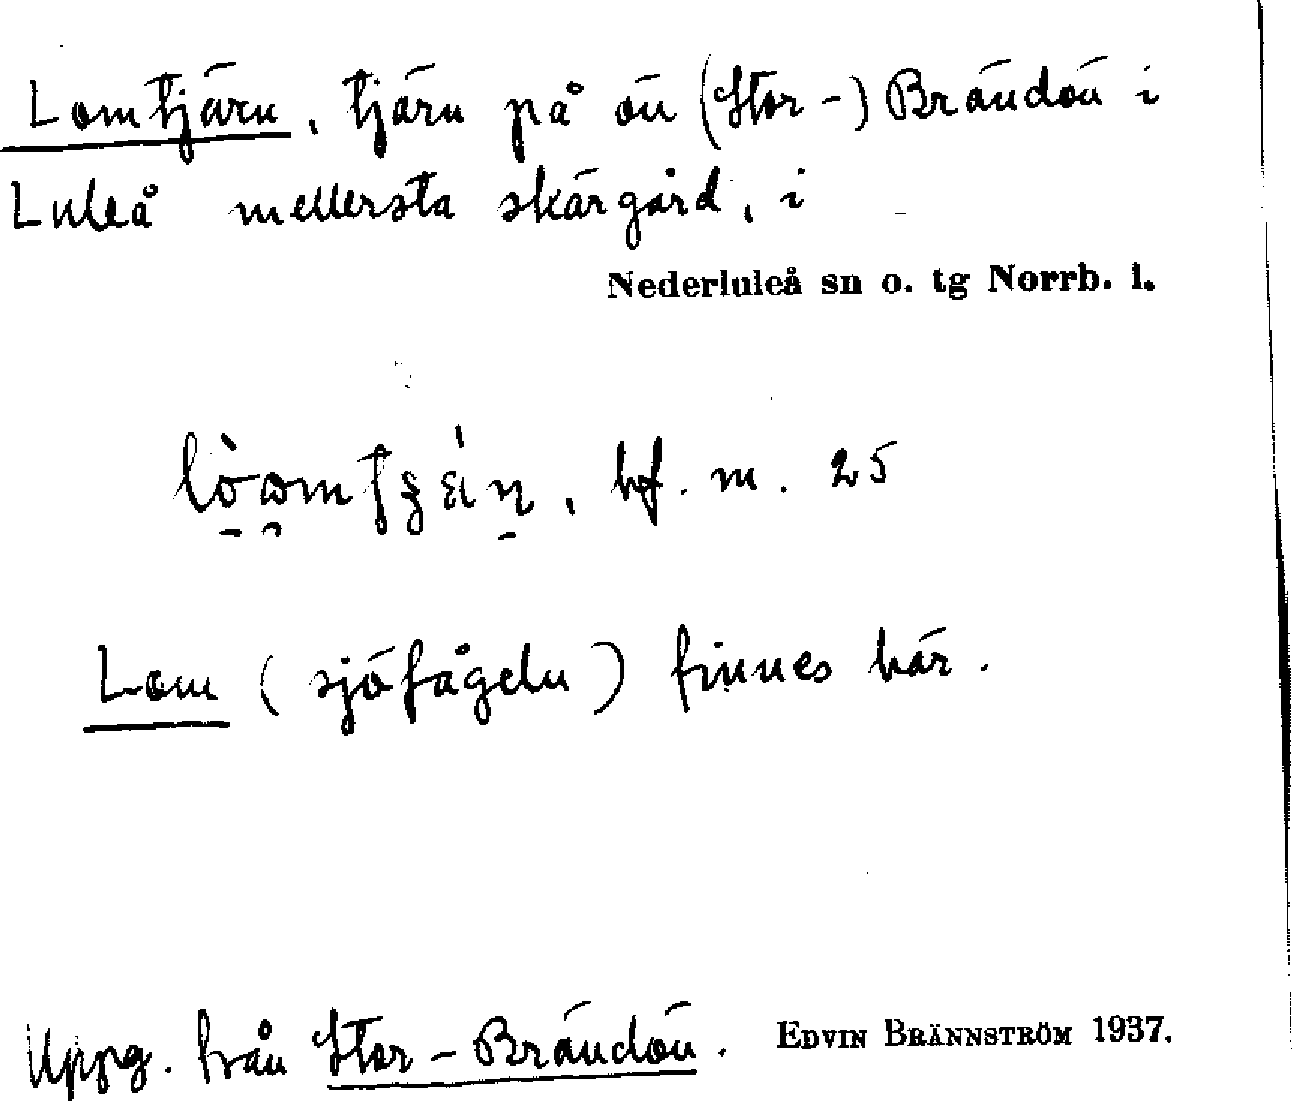 Lomtjärn, tjärn på ön (Stor-) Brändön i
Luleå mellersta skärgård, i
Nederluleå sn o. tg Norrb. l.
bf. m. 25
Lom (sjöfågeln) finnes här.
Uppg. från Stor-Brändön. EDVIN BRÄNNSTRÖM 1937.